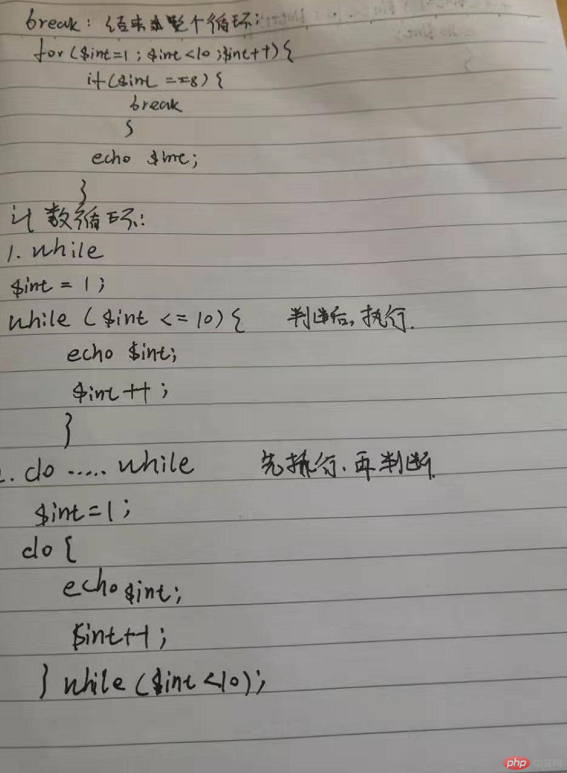 break: 结束整个循环;
for($int=1; $int<10;$int++){
if($int ==8){
break
}
echo $int;
}
计数循环:
1. while
$int = 1;
while ($int <= 10){ 判断后,执行.
echo $int;
$int++;
}
. do ..... while 先执行.再判断.
$int=1;
do {
echo $int;
$int++;
} while ($int<10);
php